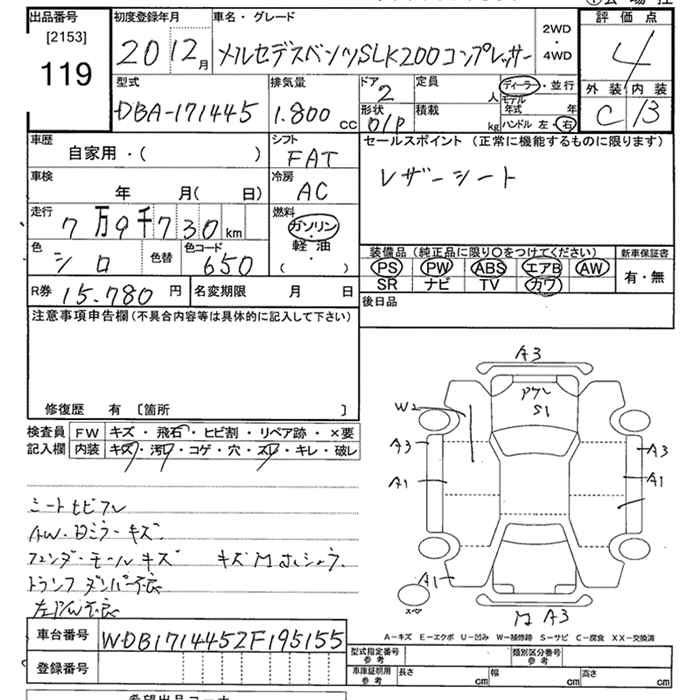 出品番号 初度登録年月 車名・グレード 2WD・4WD 評価点
[2153]
119 20 12月 メルセデスベンツSLK200コンプレッサー 4
型式 排気量 ドア 定員 外装 内装
DBA-171445 1.800cc 2 人 ディーラー・並行 C B
形状 積載 モデル年式 年
O/P kg ハンドル 左・右
車歴 シフト セールスポイント (正常に機能するものに限ります)
自家用・( ) FAT レザーシート
車検 冷房
年 月( 日) AC
走行 燃料
7万9千730km ガソリン・軽油・( )
色 色替 色コード 装備品 (純正品に限り〇をつけてください) 新車保証書
シロ 650 PS PW ABS エアB AW 有・無
SR ナビ TV カワ
R券 15.780円 名変期限 月 日 後日品
注意事項申告欄 (不具合内容等は具体的に記入して下さい)
修復歴 有 [箇所 ]
検査員記入欄 FW キズ・飛石・ヒビ割・リペア跡・×要
内装 キズ・汚レ・コゲ・穴・スレ・キレ・破レ
A3
W2
S1
A3 A3
A1 A1
A1
A3
シートヒビワレ
AW・日ミラーキズ
フェンダーモールキズ
トランクダンパー不良
左P/W不良
A-キズ E-エクボ U-凹み W-補修跡 S-サビ C-腐食 XX-交換済
車台番号 WDB1714452F195155
登録番号
型式指定番号 参考 類別区分番号 参考
車庫証明用 参考 長さ cm 幅 cm 高さ cm
希望出品コーナー